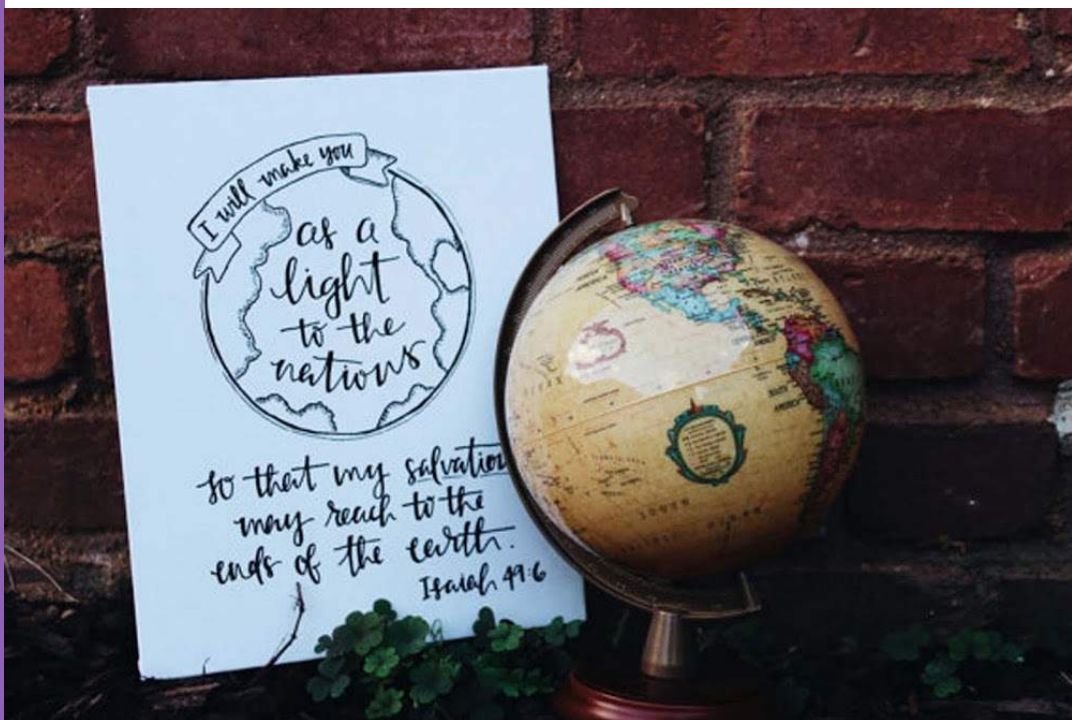 I will make you
as a
light
to the
nations
so that my salvation
may reach to the
ends of the earth.
Isaiah 49:6
SOUTH